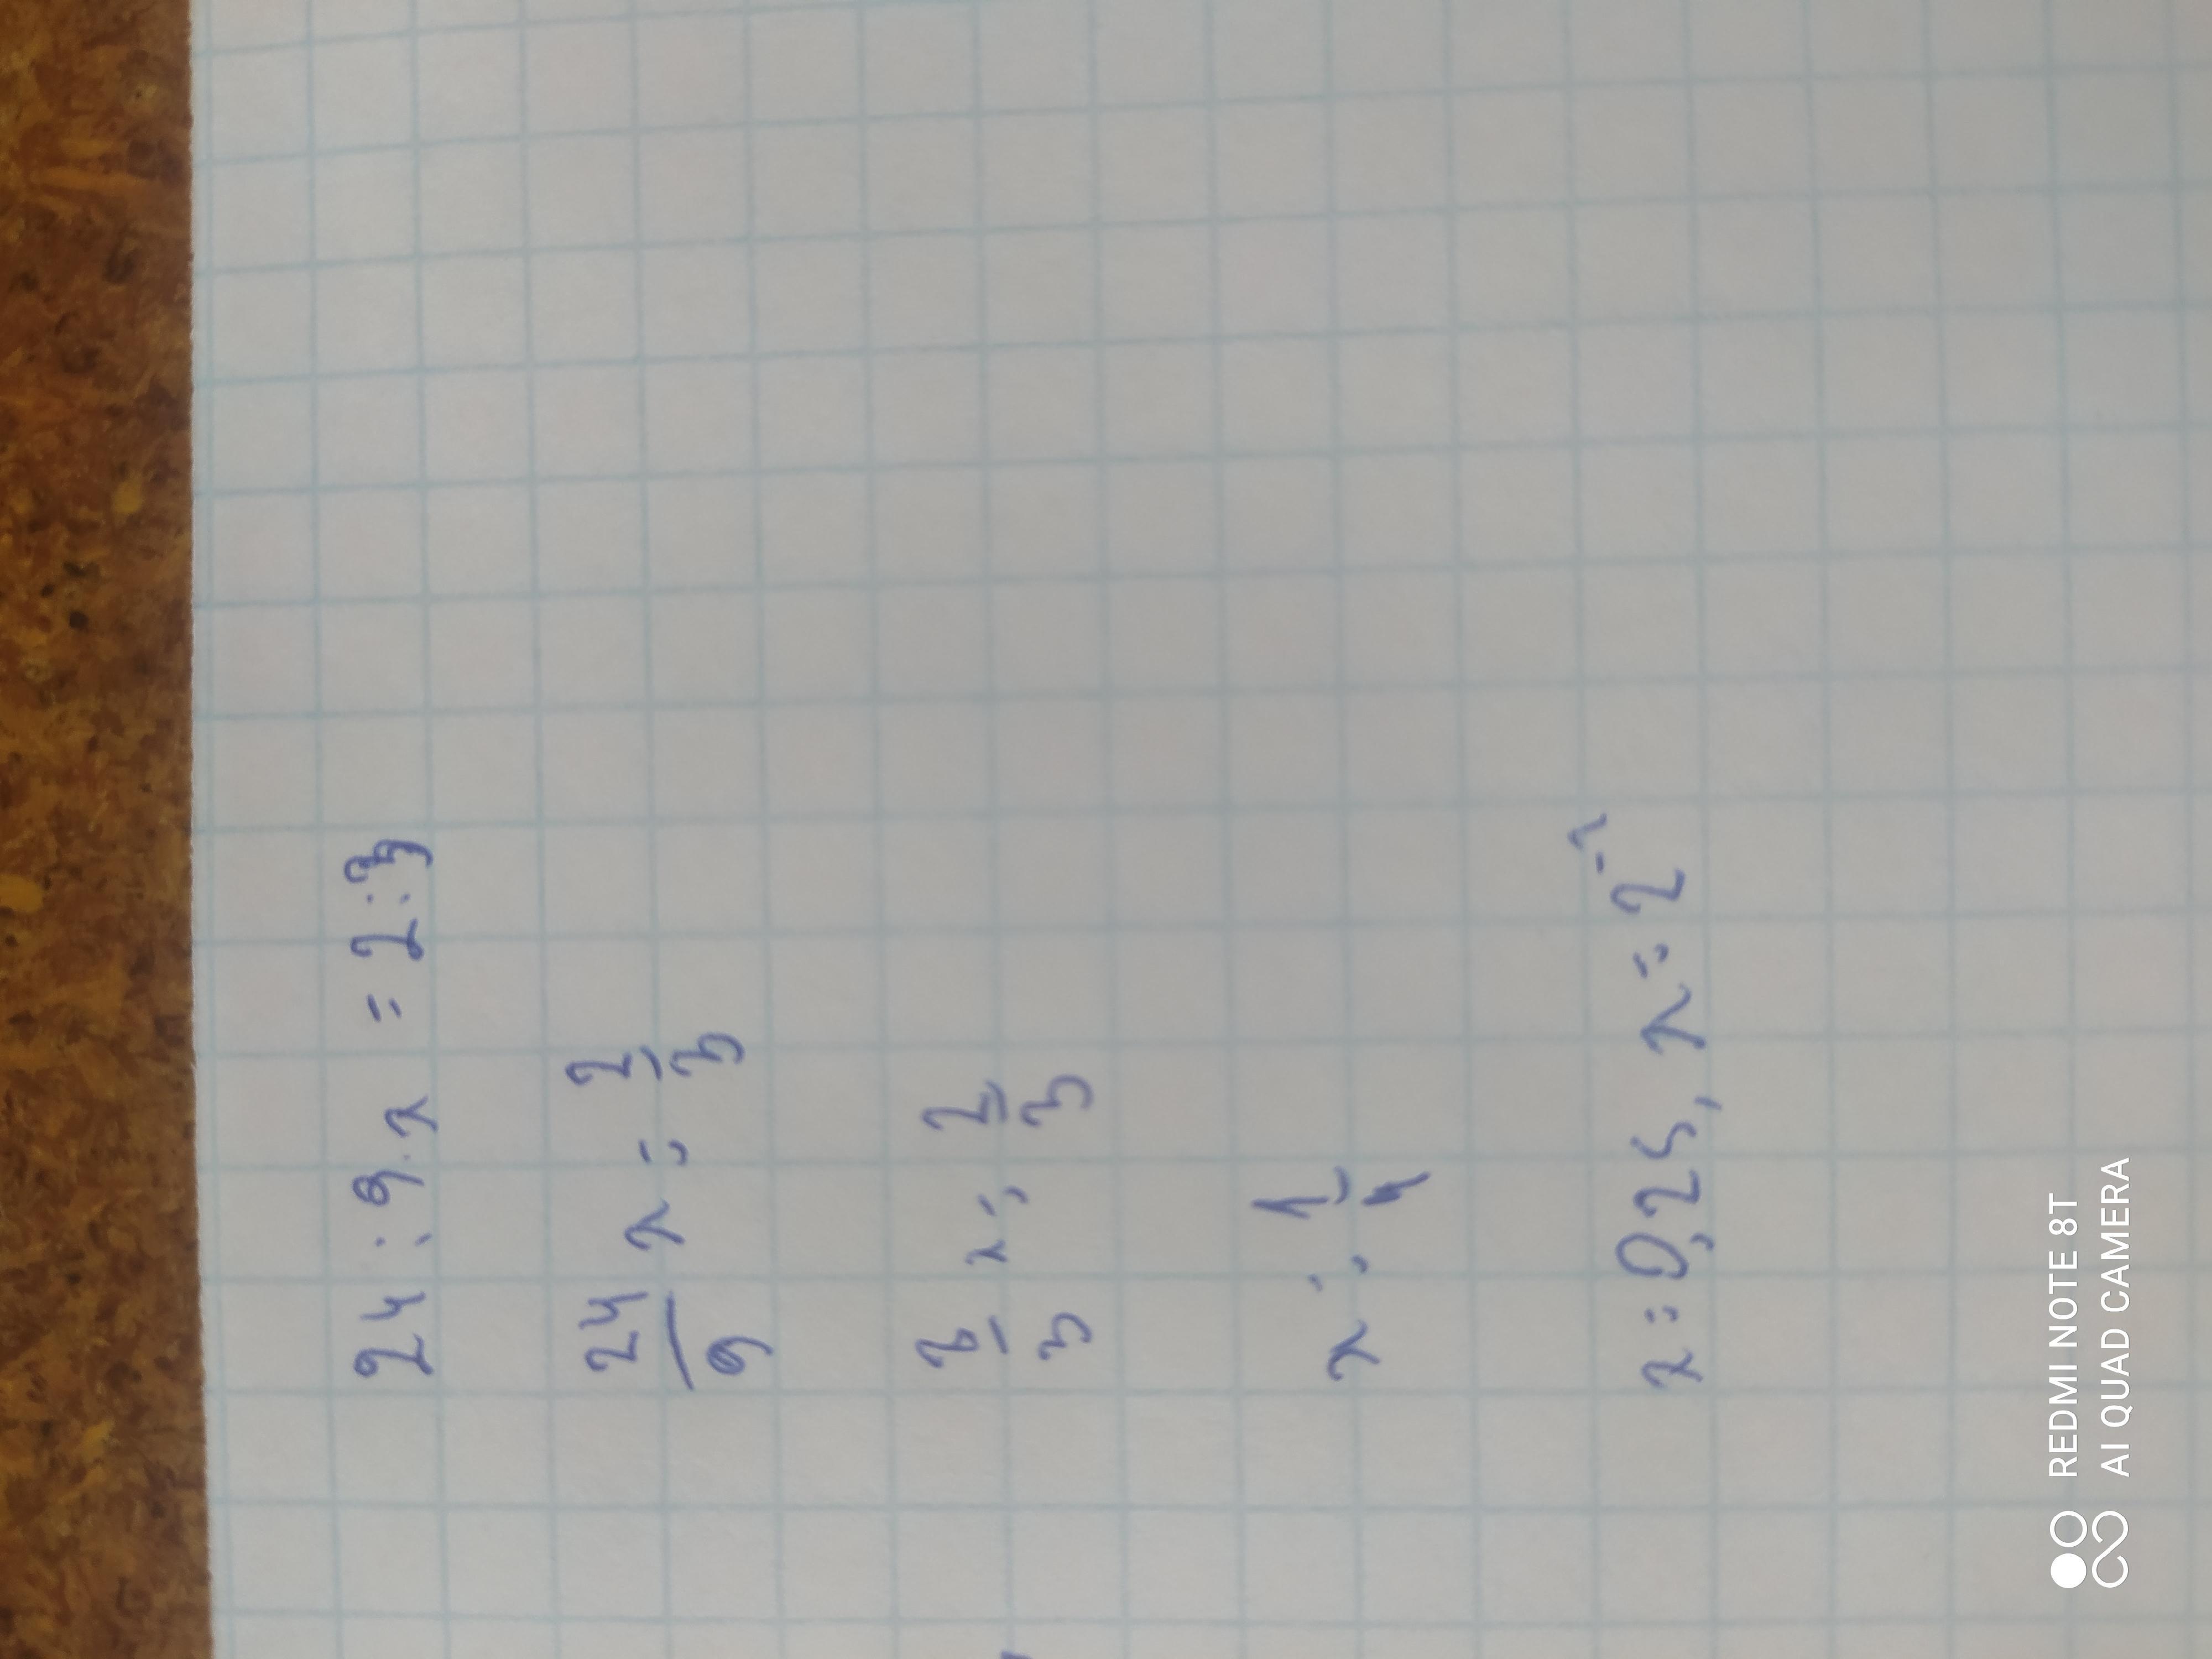 24 : 9 · x = 2 : 3
24/9 x = 2/3
8/3 x = 2/3
x = 1/4
x = 0,25, x = 2⁻²
REDMI NOTE 8T
AI QUAD CAMERA